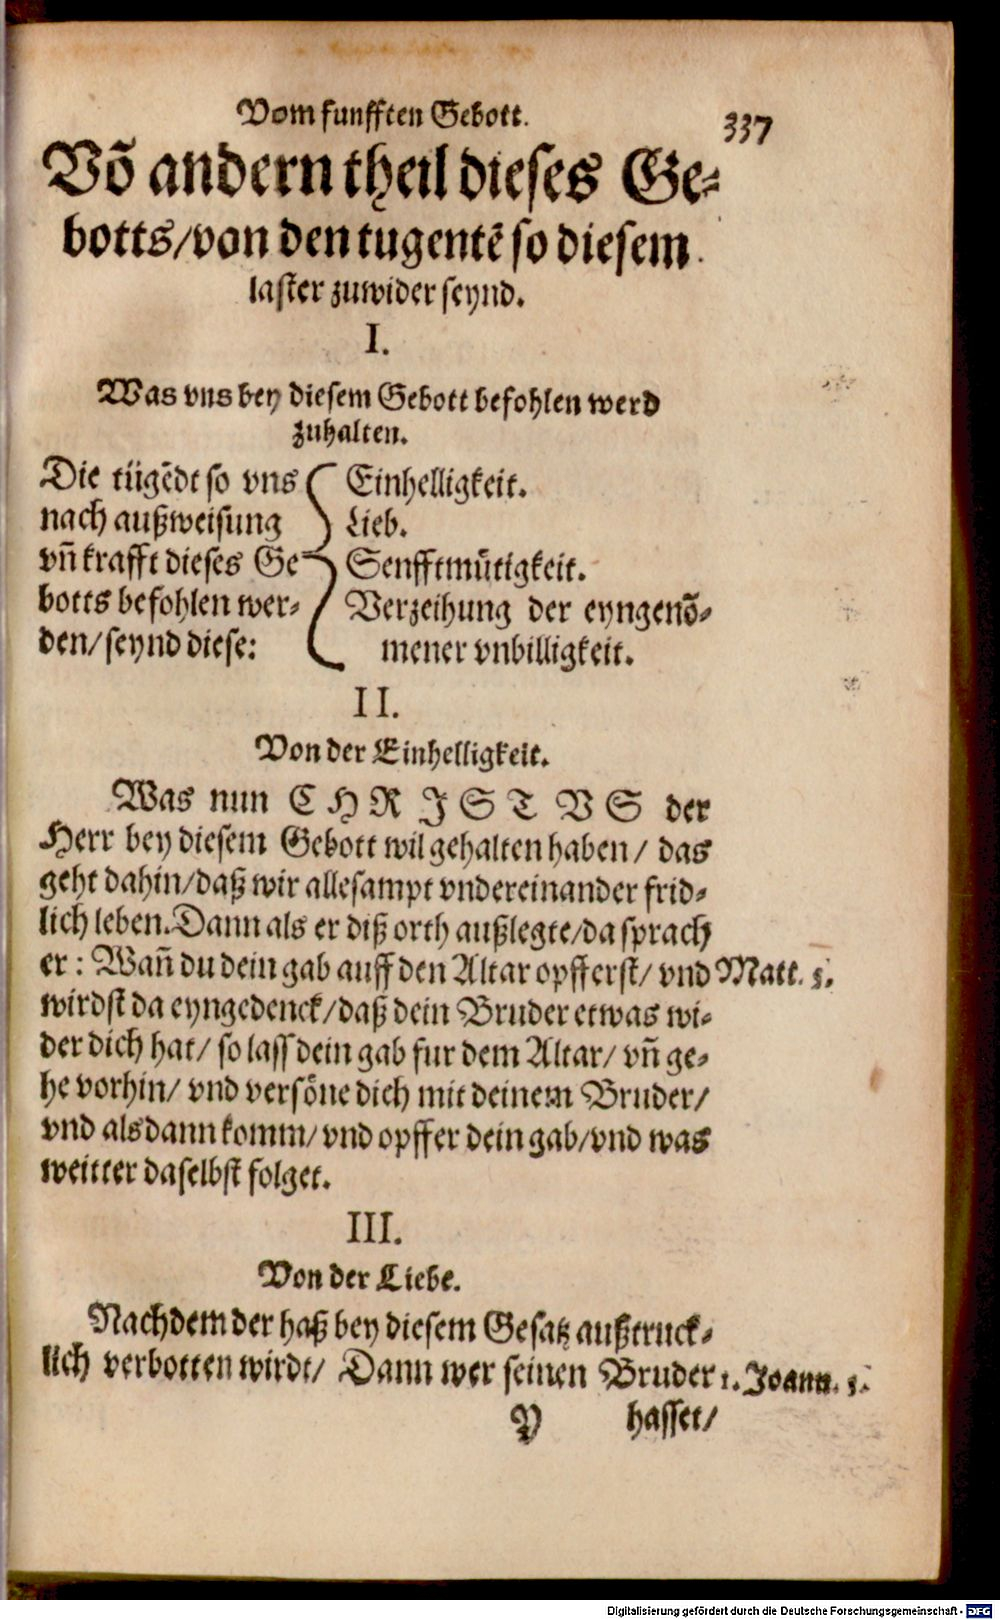 Vom funfften Gebott. 337
Võ andern theil dieses Ge-
botts/von den tugentẽ so diesem
laster zuwider seynd.
I.
Was vns bey diesem Gebott befohlen werd
zuhalten.
Die tügẽdt so vns
nach außweisung
vñ krafft dieses Ge
botts befohlen wer-
den/seynd diese:
Einhelligkeit.
Lieb.
Senfftmütigkeit.
Verzeihung der eyngenõ-
mener vnbilligkeit.
II.
Von der Einhelligkeit.
Was nun CHRISTVS der
Herr bey diesem Gebott wil gehalten haben/ das
geht dahin/daß wir allesampt vndereinander frid-
lich leben. Dann als er diß orth außlegte/da sprach
er: Wañ du dein gab auff den Altar opfferst/ vnd Matt. 5.
wirdst da eyngedenck/daß dein Bruder etwas wi-
der dich hat/ so lass dein gab fur dem Altar/ vñ ge-
he vorhin/ vnd versöne dich mit deinem Bruder/
vnd alsdann komm/ vnd opffer dein gab/vnd was
weitter daselbst folget.
III.
Von der Liebe.
Nachdem der haß bey diesem Gesatz außtruck-
lich verbotten wirdt/ Dann wer seinen Bruder 1. Joann. 3.
Y hasset/
Digitalisierung gefördert durch die Deutsche Forschungsgemeinschaft - DFG